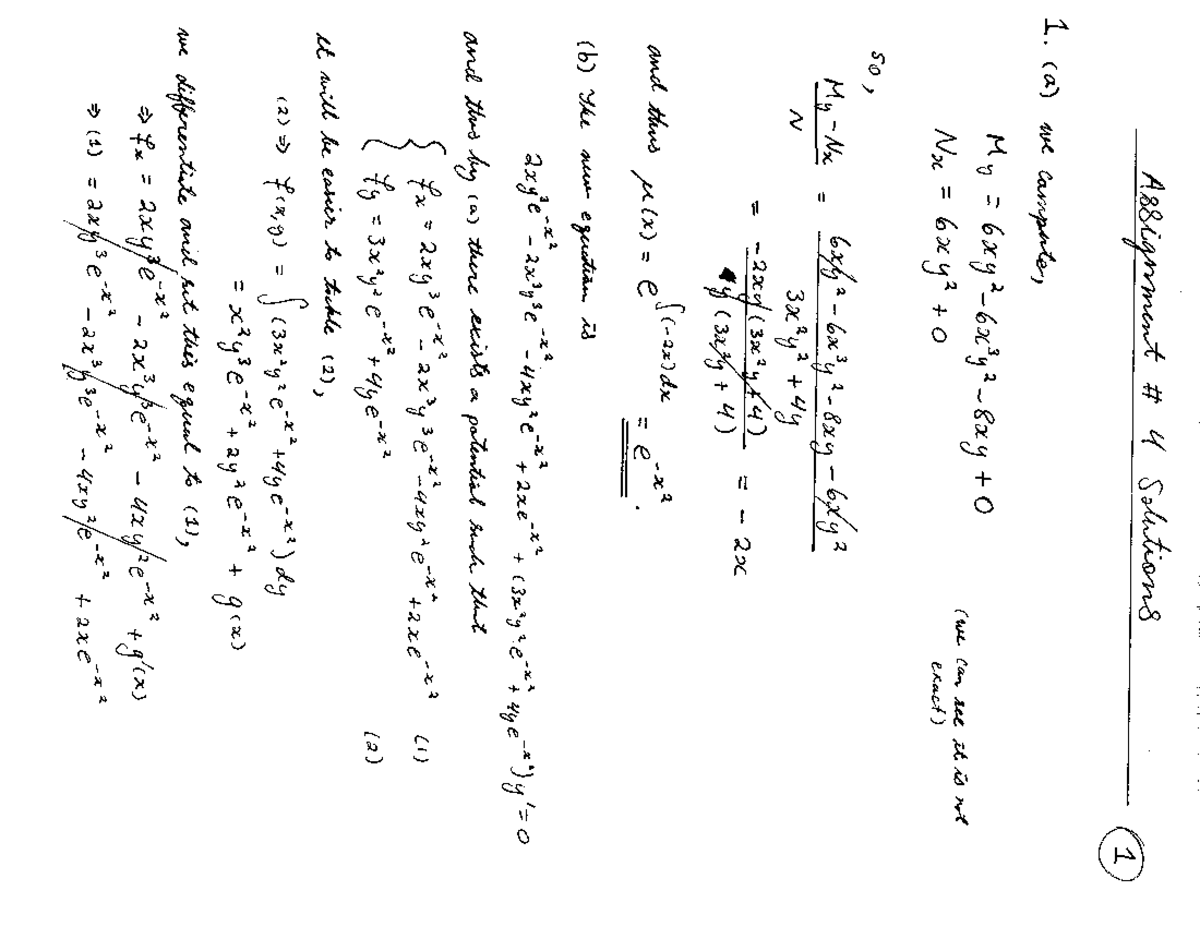 Assignment # 4 Solutions
1
1. (a) we compute,
My = 6xy² - 6x³y² - 8xy + 0
Nx = 6xy² + 0
(we can see it is not
exact)
so,
My - Nx / N = 6xy² - 6x³y² - 8xy - 6xy² / 3x²y² + 4y
= -2xy(3x²y + 4) / y(3x²y + 4) = -2x
and thus μ(x) = e^∫(-2x)dx = e^-x².
(b) The new equation is
2xy³e^-x² - 2x³y³e^-x² - 4xy²e^-x² + 2xe^-x² + (3x²y²e^-x² + 4ye^-x²)y' = 0
and thus by (a) there exists a potential such that
{ fx = 2xy³e^-x² - 2x³y³e^-x² - 4xy²e^-x² + 2xe^-x² (1)
fy = 3x²y²e^-x² + 4ye^-x² (2)
it will be easier to tackle (2),
(2) ⇒ f(x,y) = ∫(3x²y²e^-x² + 4ye^-x²)dy
= x²y³e^-x² + 2y²e^-x² + g(x)
we differentiate and set this equal to (1),
⇒ fx = 2xy³e^-x² - 2x³y³e^-x² - 4xy²e^-x² + g'(x)
⇒ (1) = 2xy³e^-x² - 2x³y³e^-x² - 4xy²e^-x² + 2xe^-x²